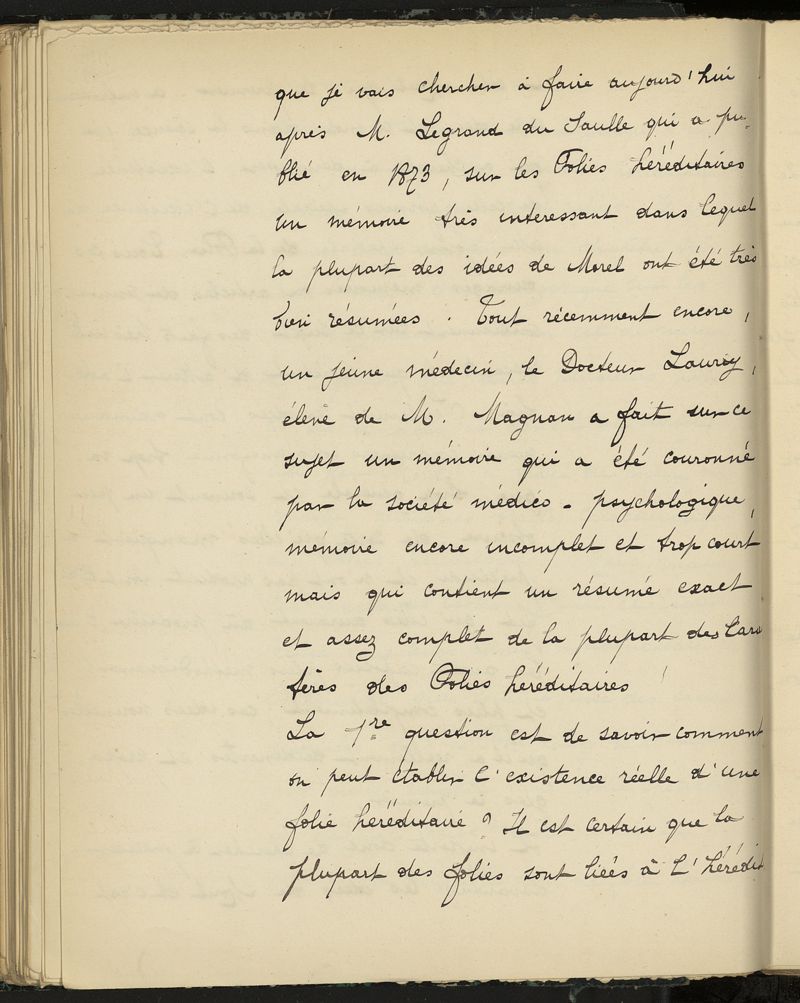 que je vais chercher à faire aujourd'hui
après M. Legrand du Saulle qui a pu-
blié en 1873, sur les Folies héréditaires
un mémoire très interessant dans lequel
la plupart des idées de Morel ont été très
bien résumées. Tout récemment encore,
un jeune médecin, le Docteur Saury,
élève de M. Magnan a fait sur ce
sujet un mémoire qui a été couronné
par la société médico-psychologique,
mémoire encore incomplet et trop court
mais qui contient un résumé exact
et assez complet de la plupart des Carac
tères des Folies héréditaires !
La 1re question est de savoir comment
on peut établir l'existence réelle d'une
folie héréditaire ? Il est certain que la
plupart des folies sont liées à l'hérédit